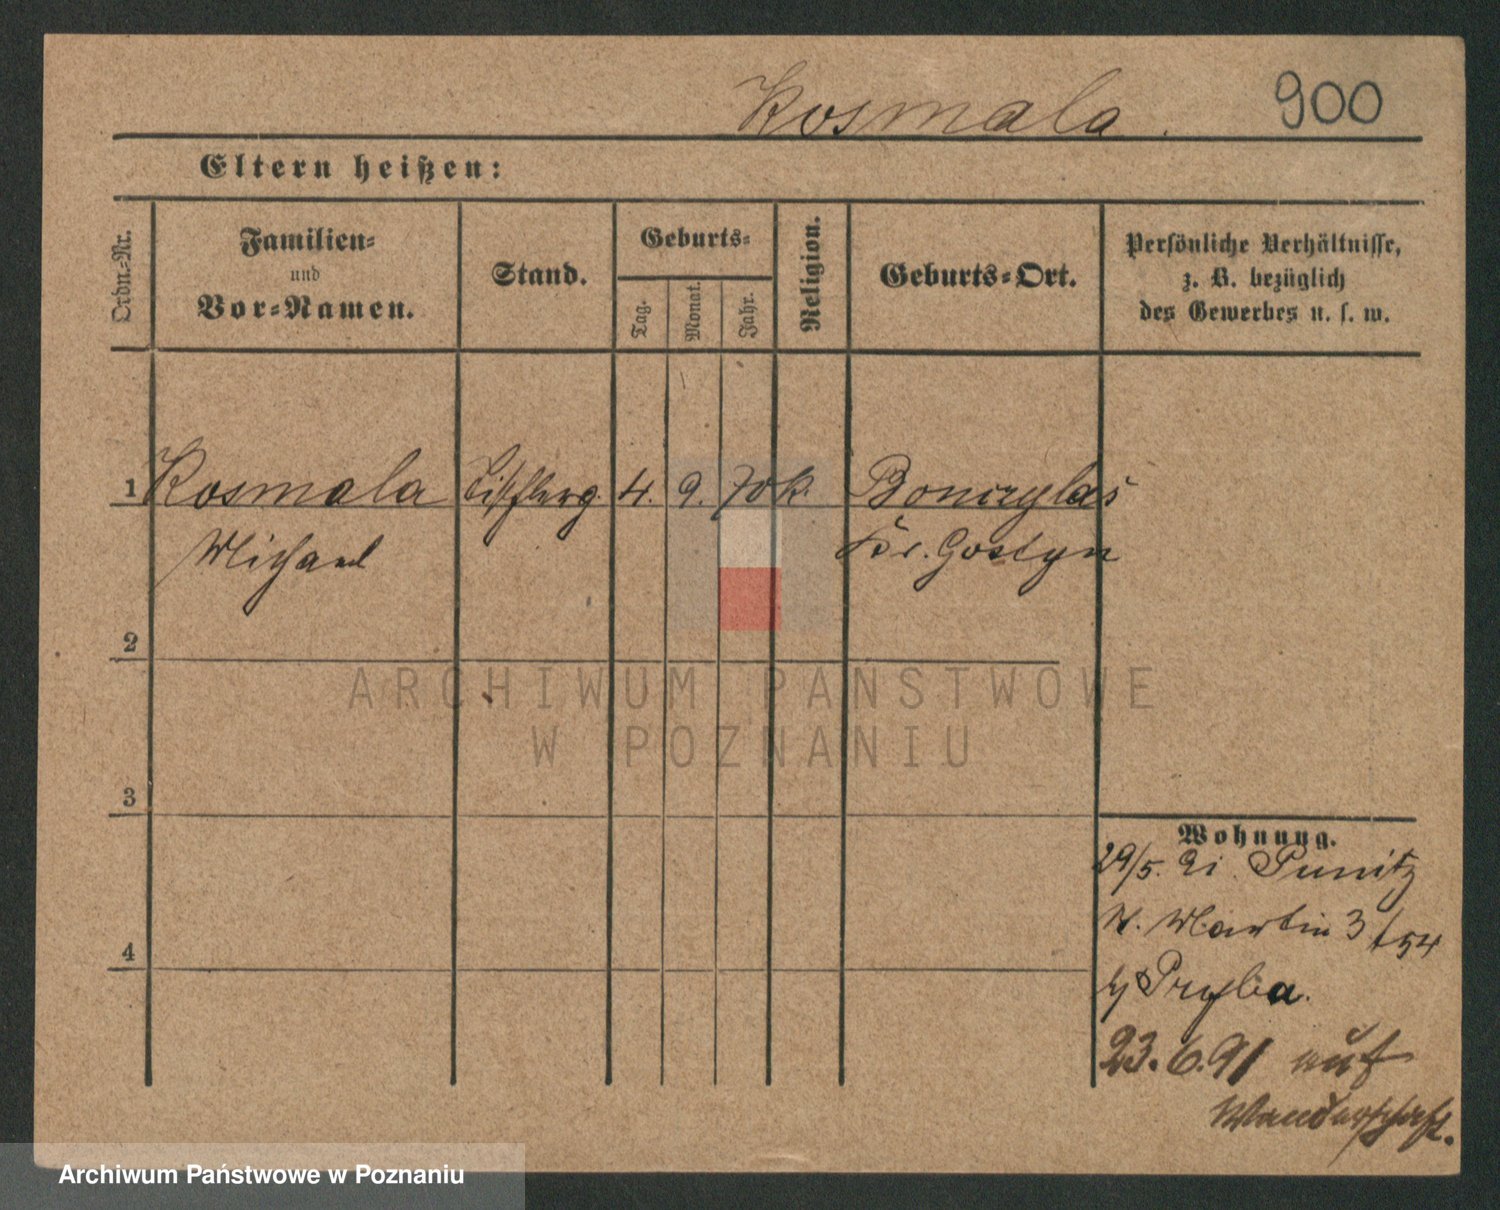 Kosmala. 900
Eltern heißen:
Ordn.-Nr.
Familien-
und
Vor-Namen.
Stand.
Geburts-
Tag.
Monat.
Jahr.
Religion.
Geburts-Ort.
Persönliche Verhältnisse,
z. B. bezüglich
des Gewerbes u. s. w.
1 Kosmala 4. 9. 70 k.
Michael Kr. Gostyn
2
3
4
Wohnung.
29/5. 91. Punitz
W. Martin 3 / 54
Pryba.
23.6.91 auf
Wanderschaft.
ARCHIWUM PAŃSTWOWE
W POZNANIU
Archiwum Państwowe w Poznaniu